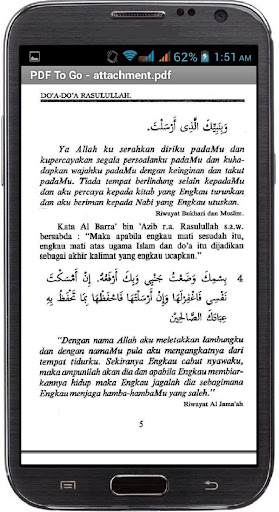 1:51 AM
PDF To Go - attachment.pdf
DO'A-DO'A RASULULLAH.
وَبِنَبِيِّكَ الَّذِى أَرْسَلْتَ.
Ya Allah ku serahkan diriku padaMu dan
kupercayakan segala persoalanku padaMu dan kuha-
dapkan wajahku padaMu dengan keinginan dan takut
padaMu. Tiada tempat berlindung selain kepadaMu
dan aku percaya kepada kitab yang Engkau turunkan
dan aku beriman kepada Nabi yang Engkau utuskan.
Riwayat Bukhari dan Muslim.
Kata Al Barra' bin 'Azib r.a. Rasulullah s.a.w.
bersabda : "Maka apabila engkau mati sesudah itu,
engkau mati atas ugama Islam dan do'a itu dijadikan
sebagai akhir kalimat yang engkau ucapkan."
4 بِسْمِكَ وَضَعْتُ جَنْبِى وَبِكَ أَرْفَعُهُ. إِنْ أَمْسَكْتَ
نَفْسِى فَاغْفِرْلَهَا وَإِنْ أَرْسَلْتَهَا فَاحْفَظْهَا بِمَا تَحْفَظُ بِهِ
عِبَادَكَ الصَّالِحِيْنَ
"Dengan nama Allah aku meletakkan lambungku
dan dengan namaMu pula aku mengangkatnya dari
tempat tidurku. Sekiranya Engkau cabut nyawaku,
maka ampunilah akan dia dan apabila Engkau membiar-
kannya hidup maka Engkau jagalah dia sebagaimana
Engkau menjaga hamba-hambaMu yang saleh."
Riwayat Al Jama'ah
5